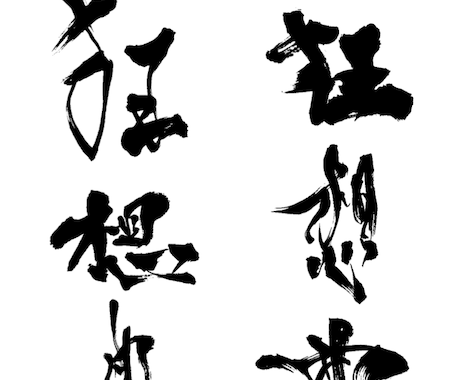 狂想
狂想